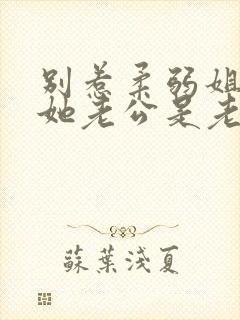 别惹柔弱姐
她老公是老
蘇葉淺夏